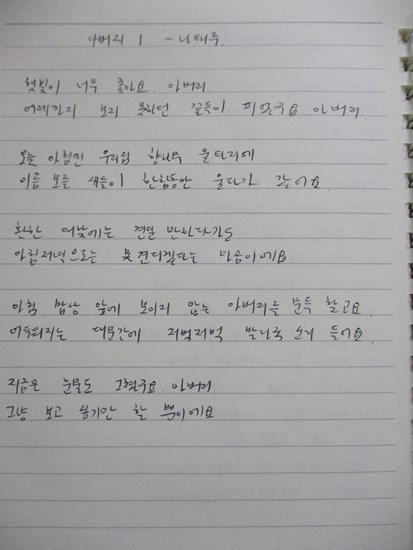 아버지 1 - 나태주
햇빛이 너무 좋아요. 아버지
어제까지 보지 못하던 꽃들이 피었구요 아버지
오늘 아침엔 우리집 향나무 울타리에
이름 모를 새들이 한참동안 울다가 갔어요
환한 대낮에는 견딜 만하다가도
아침저녁으로는 못견디겠다는 마음이에요
아침 밥상 앞에 보이지 않는 아버지를 문득 찾고요
어두워지는 대문간에 저벅저벅 발자국 소리 들어요
지금은 눈물도 그쳤구요 아버지
그냥 보고 싶기만 할 뿐이에요